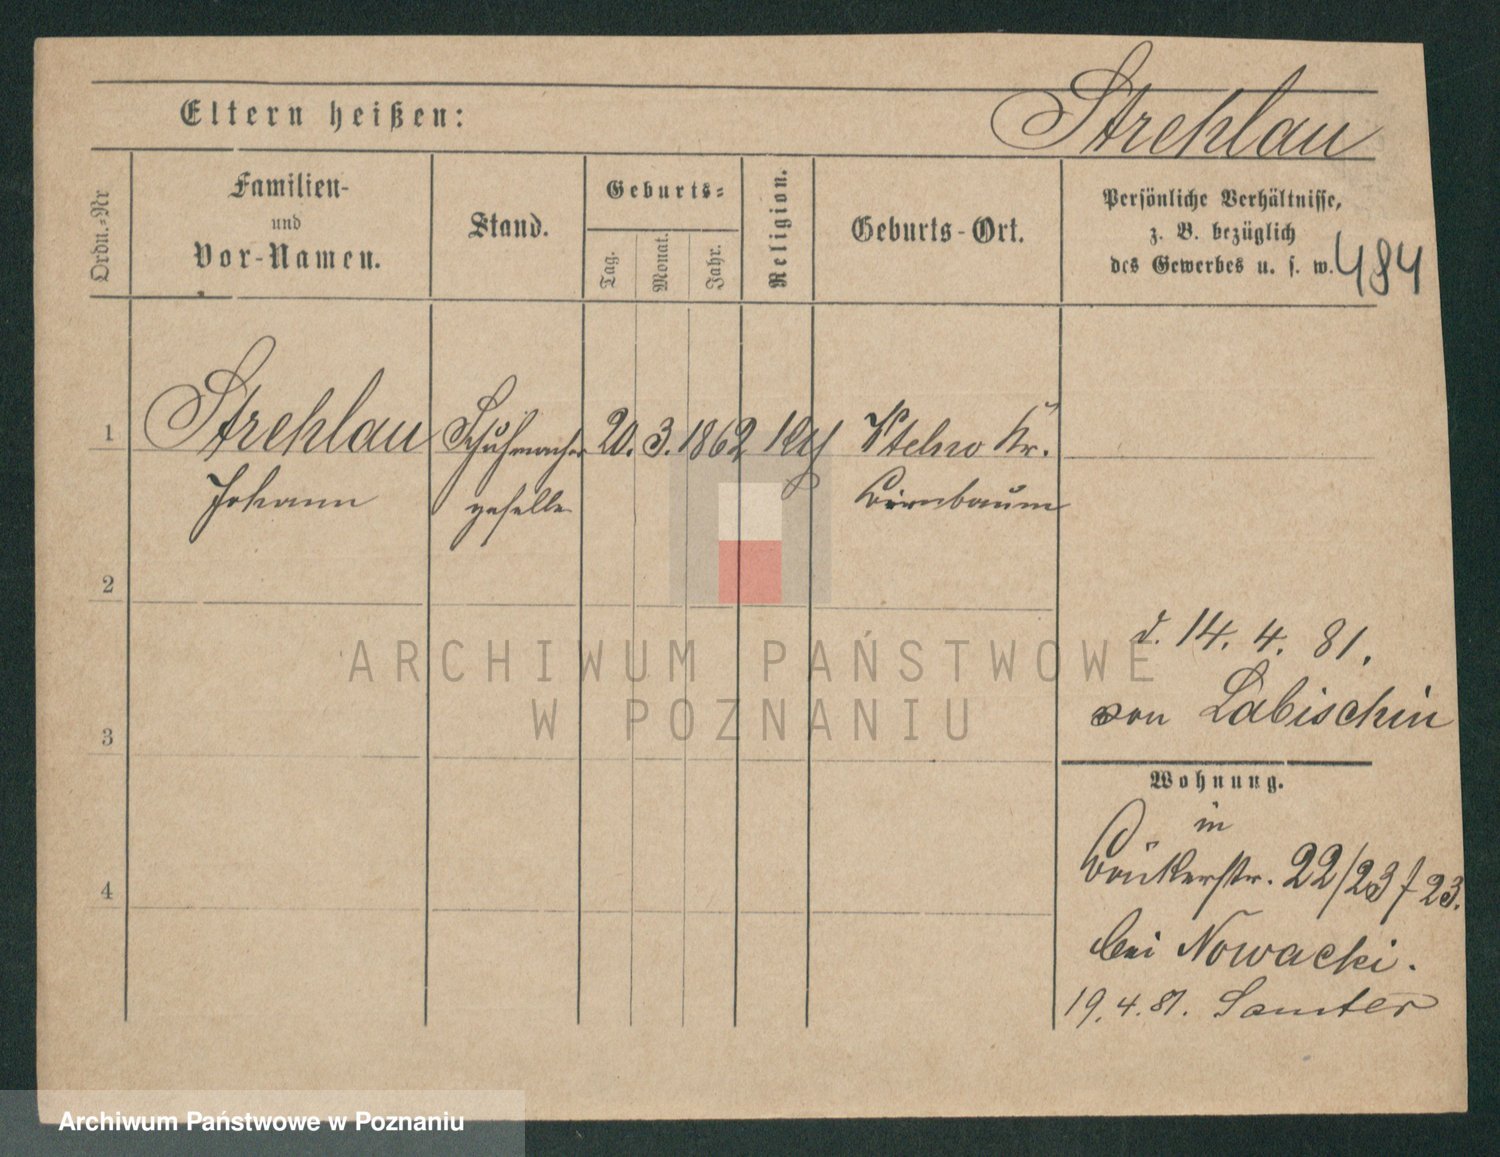 Eltern heißen:
Strehlau
Ordn.-Nr
Familien-
und
Vor-Namen.
Stand.
Geburts-
Tag.
Monat.
Jahr.
Religion.
Geburts-Ort.
Persönliche Verhältnisse,
z. B. bezüglich
des Gewerbes u. s. w.
484
1 Strehlau Schuhmacher 20. 3. 1862 Kr.
Johann geselle Birnbaum
2
d. 14. 4. 81.
von Labischin
3
Wohnung.
in
4 22/23 23.
bei Nowacki.
19. 4. 81. Samter
ARCHIWUM PAŃSTWOWE
W POZNANIU
Archiwum Państwowe w Poznaniu